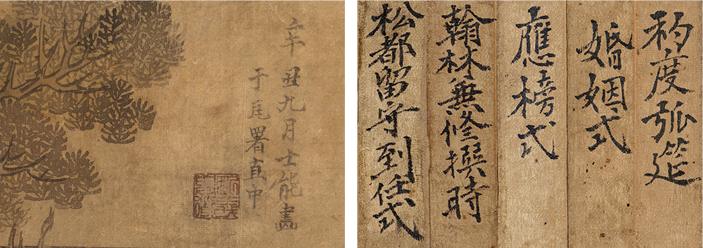 辛丑九月士能畫
于瓦署直中
初度弧筵
婚姻式
應榜式
翰林兼修撰時
松都留守到任式